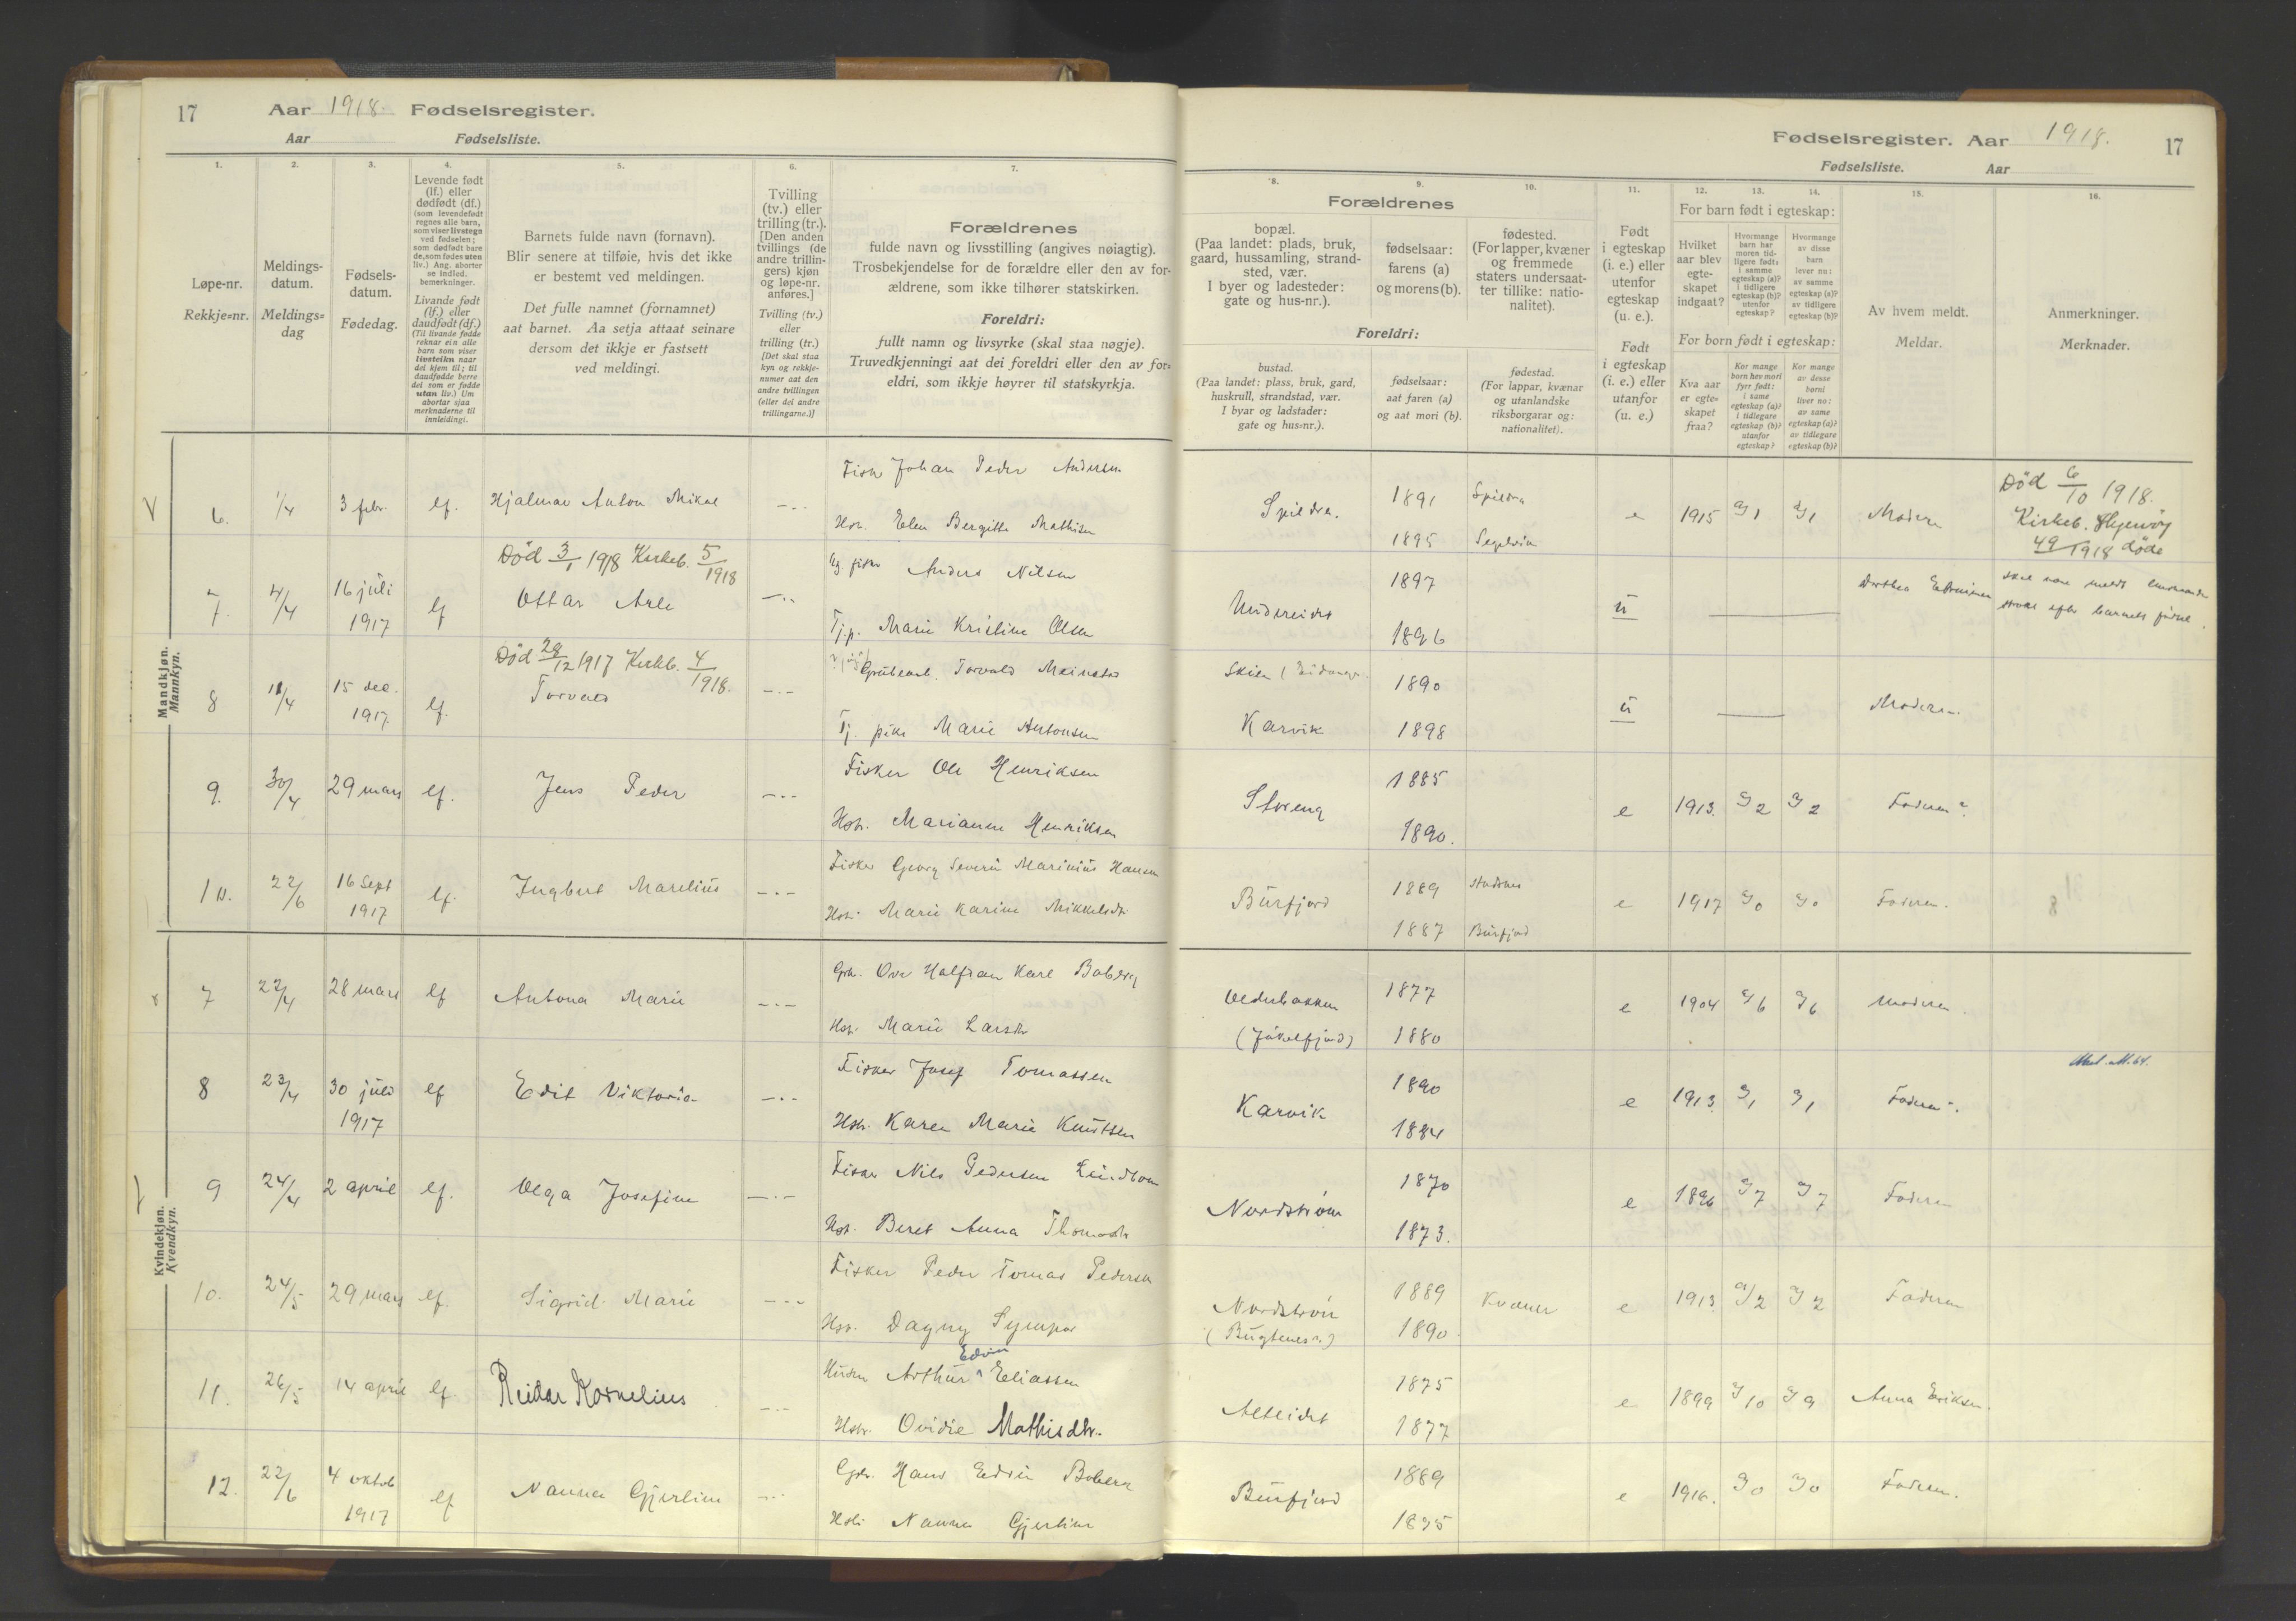 17 Aar 1918. Fødselsregister.
Aar Fødselsliste.
1. 2. 3. 4. 5. 6. 7.
Løpe-nr.
Rekkje-nr.
Meldings-
datum.
Meldings-
dag
Fødsels-
datum.
Fødedag.
Levende født
(lf.) eller
dødfødt (df.)
(som levendefødt
regnes alle barn,
som viser livstegn
ved fødselen;
som dødfødt bare
de, som fødes uten
liv.) Ang. aborter
se indled.
bemerkninger.
Livande født
(lf.) eller
daudfødt (df.)
(Til livande fødde
reknar ein alle
barn som viser
livsteikn naar
dei kjem til; til
daudfødde berre
dei som er fødde
utan liv.) Um
abortar sjaa
merknaderne til
innleidingi.
Barnets fulde navn (fornavn).
Blir senere at tilføie, hvis det ikke
er bestemt ved meldingen.
Det fulle namnet (fornamnet)
aat barnet. Aa setja attaat seinare
dersom det ikkje er fastsett
ved meldingi.
Tvilling
(tv.) eller
trilling (tr.).
[Den anden
tvillings (de
andre trillin-
gers) kjøn
og løpe-nr.
anføres.]
Tvilling (tv.)
eller
trilling (tr.)
[Det skal staa
kyn og rekkje-
numer aat den
andre tvillingen
(eller dei andre
trillingarne.)]
Forældrenes
fulde navn og livsstilling (angives nøiagtig).
Trosbekjendelse for de forældre eller den av for-
ældrene, som ikke tilhører statskirken.
Foreldri:
fullt namn og livsyrke (skal staa nøgje).
Truvedkjenningi aat dei foreldri eller den av for-
eldri, som ikkje høyrer til statskyrkja.
Mandkjøn.
Mannkyn.
6. 1/4 3 febr. lf. Hjalmar Anton Mikal
Johan Peder Andersen
Elen Bergitte Mathisen
Død 3/1 1918 Kirkeb. 5/1918
7. 4/4 16 juli 1917 lf Ottar Arle
Anders Nilsen
Marie Kristine Olsen
Død 28/12 1917 Kirkeb. 4/1918.
8 11/4 15 dec. 1917. lf. Torvald
Grubearb. Torvald
Tj. pike Marie Antonsen
9. 30/4 29 mars lf. Jens Peder
Fisker Ole Henriksen
Hstr. Marianne Henriksen
10. 22/6 16 Sept 1917 lf. Ingbert Marelius
Fisker Georg Severin Marinius Hansen
Hstr. Marie Karine Mikkelsdtr.
Kvindekjøn.
Kvendkyn.
7 22/4 28 mars lf Antona Marie
Ove Halfran Karl Boberg
Hstr. Marie Larsdtr
8 23/4 30 juli 1917 lf Edit Viktoria
Fisker Josef Tomassen
Hstr. Karen Marie Knutsen
9 24/4 2 april lf. Olga Josefine
Fisker Nils Pedersen
Hstr. Beret Anna Thomasdtr
10. 24/5 29 mars lf. Sigrid Marie
Fisker Peder Tomas Pedersen
Hstr. Dagny
11. 26/5 14 april lf. Reidar Kornelius
Arthur Edvin Eliassen
Hstr. Ovidie Mathisdtr.
12. 22/6 4 oktob 1917 lf Nanna Gjertine
Gbr. Hans Edvin Boberg
Hstr. Nanna Gjertine
Fødselsregister. Aar 1918. 17
Fødselsliste. Aar
8. 9. 10. 11. 12. 13. 14. 15. 16.
Forældrenes
bopæl.
(Paa landet: plads, bruk,
gaard, hussamling, strand-
sted, vær.
I byer og ladesteder:
gate og hus-nr.).
fødselsaar:
farens (a)
og morens (b).
fødested.
(For lapper, kvæner
og fremmede
staters undersaat-
ter tillike: natio-
nalitet).
Foreldri:
bustad.
(Paa landet: plass, bruk, gard,
huskrull, strandstad, vær.
I byar og ladstader:
gate og hus-nr.).
fødselsaar:
aat faren (a)
og aat mori (b).
fødestad.
(For lappar, kvænar
og utanlandske
riksborgarar og:
nationalitet).
Født
i egteskap
(i. e.) eller
utenfor
egteskap
(u. e.).
Født
i egteskap
(i. e.) eller
utanfor
(u. e.)
For barn født i egteskap:
Hvilket
aar blev
egte-
skapet
indgaat?
Hvormange
barn har
moren tid-
ligere født:
i samme
egteskap (a)?
i tidligere
egteskap (b)?
utenfor
egteskap?
Hvormange
av disse
barn
lever nu:
av samme
egteskap (a)?
av tidligere
egteskap (b)?
For born født i egteskap:
Kva aar
er egte-
skapet
fraa?
Kor mange
born hev mori
fyrr født:
i same
egteskap (a)?
i tidlegare
egteskap (b)?
utanfor
egteskap?
Kor mange
av desse
borni
liver no:
av same
egteskap (a)?
av tidlegare
egteskap (b)?
Av hvem meldt.
Meldar.
Anmerkninger.
Merknader.
Spildra. 1891 Spildra e 1915 Moderen
1895 Segelvik
Død 6/10 1918.
Kirkeb. Skjervøy
49/1918 døde
1897
Undereidet u
1896
Skien 1890
u Moderen.
Karvik 1898
1885
e 1913. 2 2 Faderen
1890.
Burfjord 1889 e 1917 0 0 Faderen.
1887 Burfjord
1877
e 1904 6 6 Moderen
(Jøkelfjord) 1880
1890
Karvik e 1913. 1 1 Faderen.
1884
1870
e 1896 7 7 Faderen
1873.
1889 Kvæner e 1913. 2 2 Faderen
1890.
1875
Alteidet e 1899 10 9 Anna Eriksen.
1877
1889
Burfjord e 1916. 0 0 Faderen.
1895